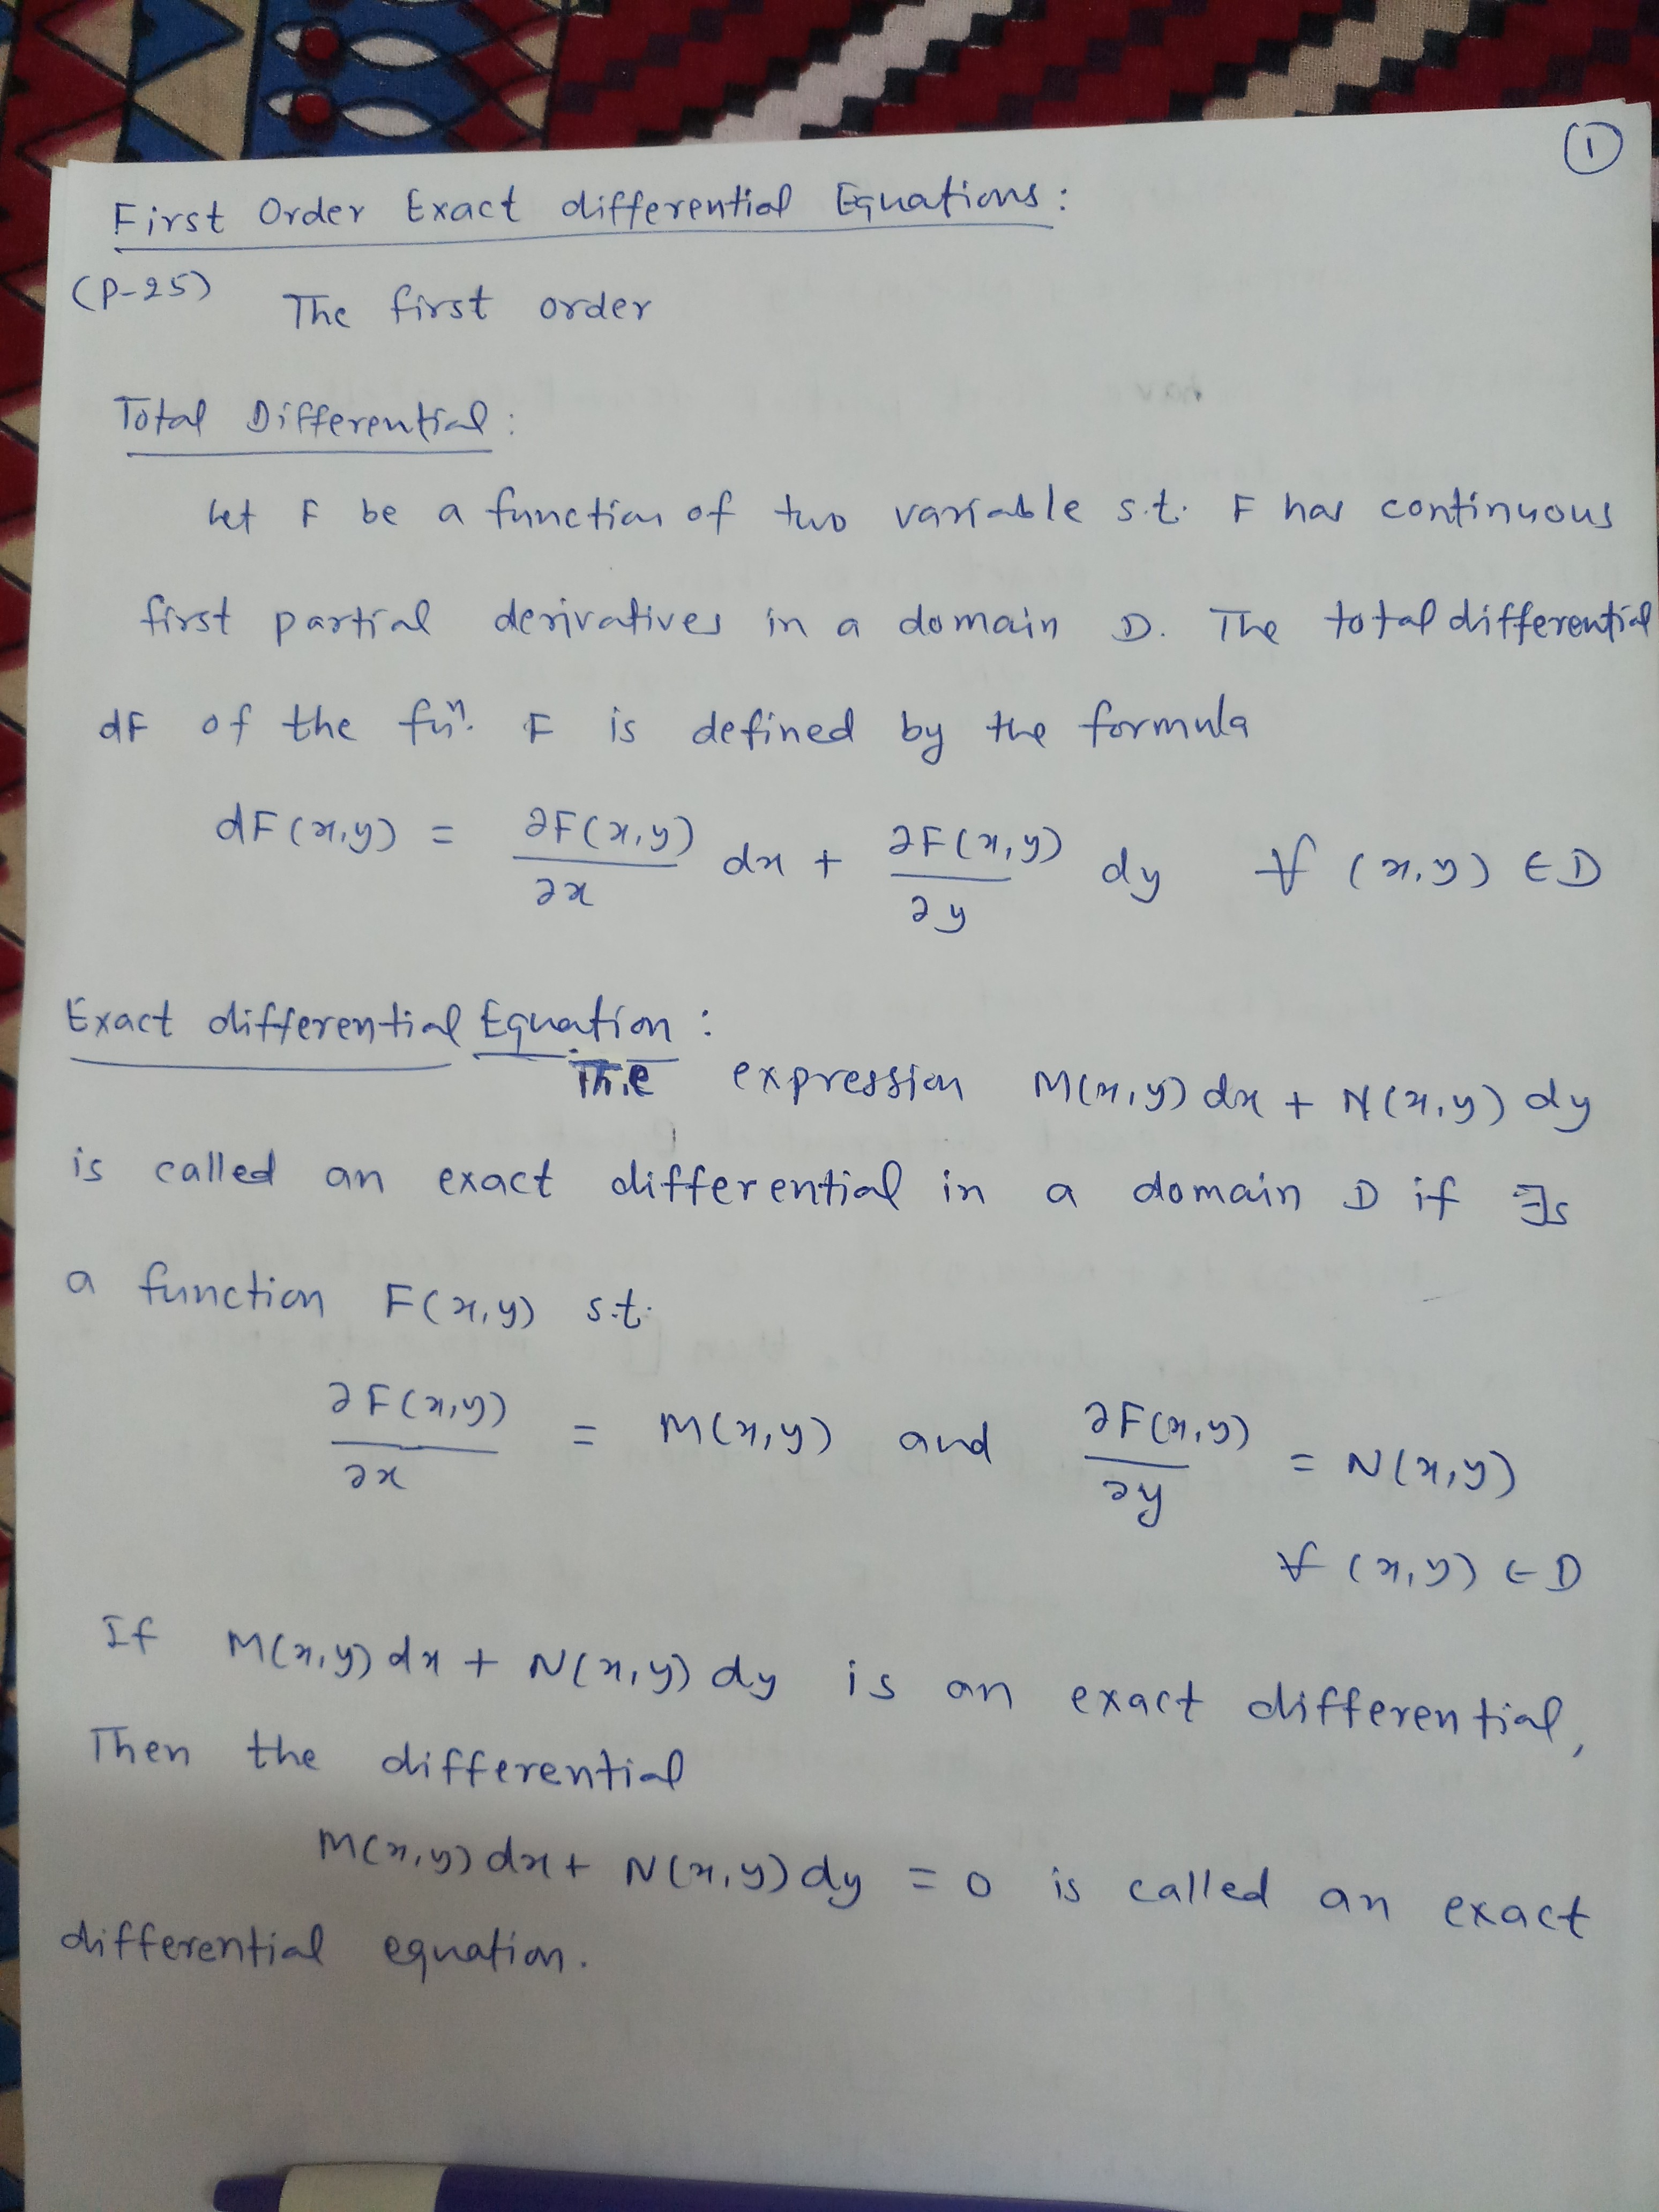 ①
First Order Exact differential Equations:
(P-25) The first order
Total Differential:
Let F be a function of two variable s.t. F has continuous
first partial derivatives in a domain D. The total differential
dF of the fuⁿ. F is defined by the formula
dF(x,y) = ∂F(x,y)/∂x dx + ∂F(x,y)/∂y dy ∀ (x,y) ∈ D
Exact differential Equation:
The expression M(x,y) dx + N(x,y) dy
is called an exact differential in a domain D if ∃s
a function F(x,y) s.t.
∂F(x,y)/∂x = M(x,y) and ∂F(x,y)/∂y = N(x,y)
∀ (x,y) ∈ D
If M(x,y) dx + N(x,y) dy is an exact differential,
Then the differential
M(x,y) dx + N(x,y) dy = 0 is called an exact
differential equation.